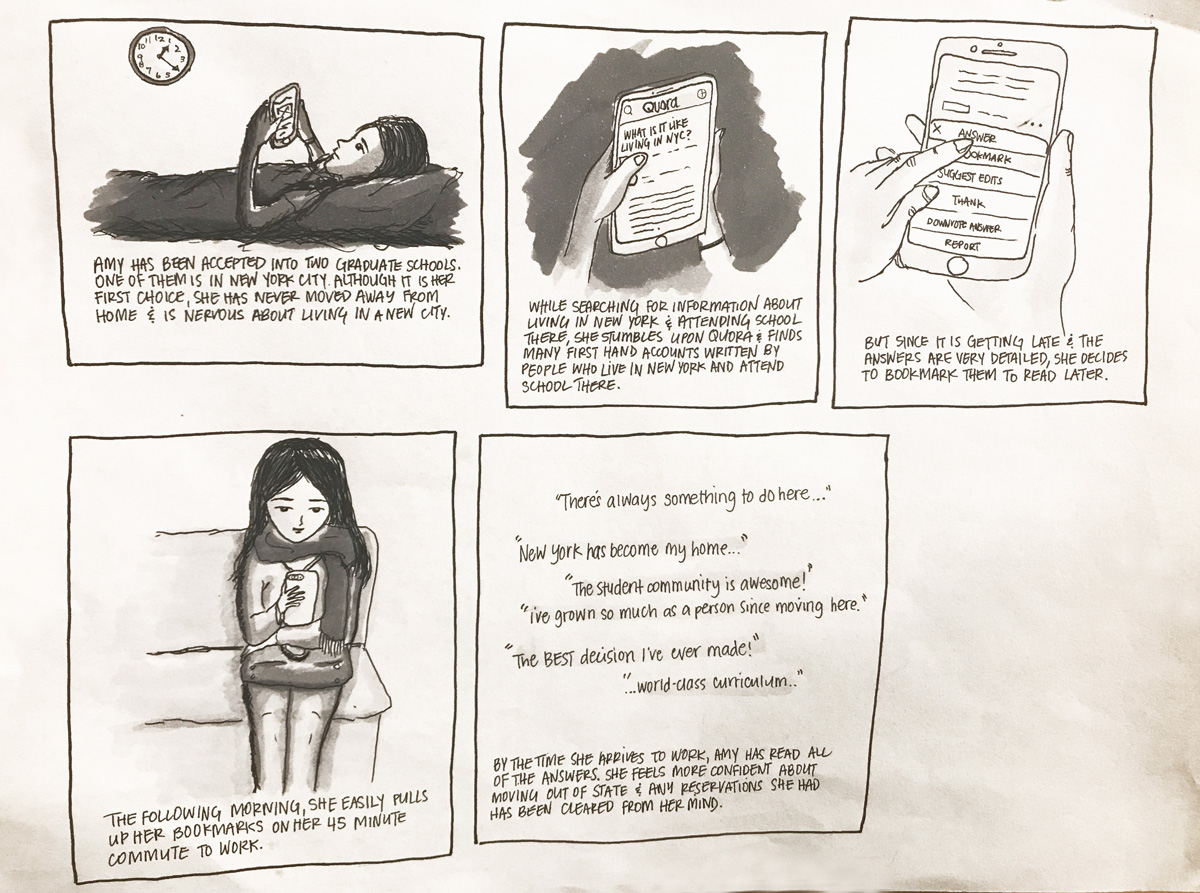 11 12 1
10 2
9 3
8
7 6 5
AMY HAS BEEN ACCEPTED INTO TWO GRADUATE SCHOOLS.
ONE OF THEM IS IN NEW YORK CITY. ALTHOUGH IT IS HER
FIRST CHOICE, SHE HAS NEVER MOVED AWAY FROM
HOME & IS NERVOUS ABOUT LIVING IN A NEW CITY.
Quora
WHAT IS IT LIKE
LIVING IN NYC?
WHILE SEARCHING FOR INFORMATION ABOUT
LIVING IN NEW YORK & ATTENDING SCHOOL
THERE, SHE STUMBLES UPON QUORA & FINDS
MANY FIRST HAND ACCOUNTS WRITTEN BY
PEOPLE WHO LIVE IN NEW YORK AND ATTEND
SCHOOL THERE.
X ANSWER
OOKMARK
SUGGEST EDITS
THANK
DOWNVOTE ANSWER
REPORT
BUT SINCE IT IS GETTING LATE & THE
ANSWERS ARE VERY DETAILED, SHE DECIDES
TO BOOKMARK THEM TO READ LATER.
THE FOLLOWING MORNING, SHE EASILY PULLS
UP HER BOOKMARKS ON HER 45 MINUTE
COMMUTE TO WORK.
"There's always something to do here..."
"New York has become my home..."
"The student community is awesome!"
"i've grown so much as a person since moving here."
"The BEST decision I've ever made!"
"...world-class curriculum..."
BY THE TIME SHE ARRIVES TO WORK, AMY HAS READ ALL
OF THE ANSWERS. SHE FEELS MORE CONFIDENT ABOUT
MOVING OUT OF STATE & ANY RESERVATIONS SHE HAD
HAS BEEN CLEARED FROM HER MIND.